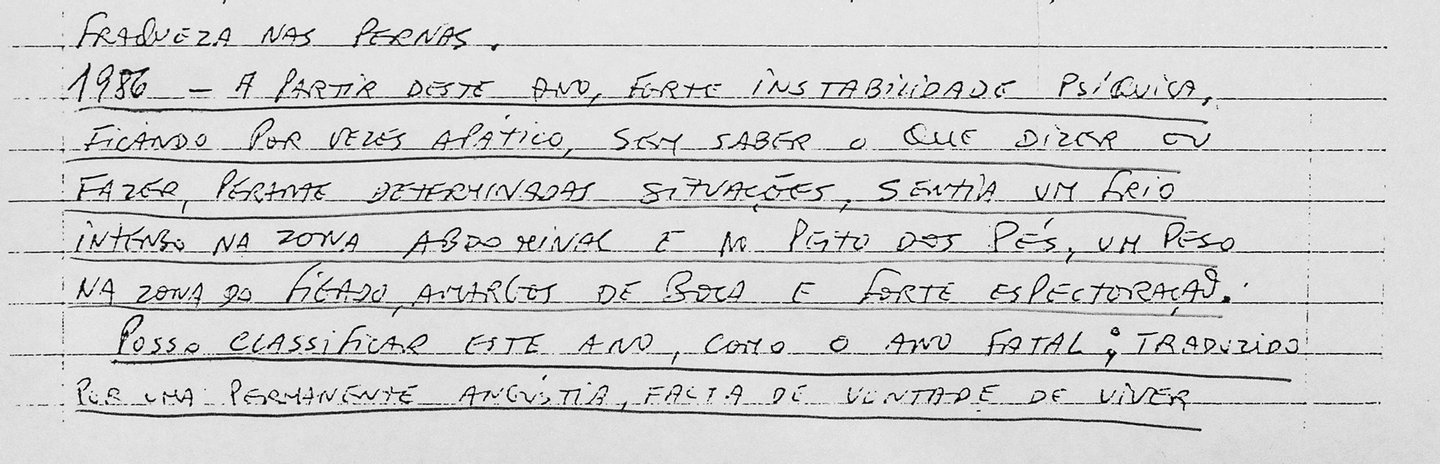 FRAQUEZA NAS PERNAS.
1986 - A PARTIR DESTE ANO, FORTE INSTABILIDADE PSÍQUICA,
FICANDO POR VEZES APÁTICO, SEM SABER O QUE DIZER OU
FAZER, PERANTE DETERMINADAS SITUAÇÕES, SENTIA UM FRIO
INTENSO NA ZONA ABDOMINAL E NO PEITO DOS PÉS, UM PESO
NA ZONA DO FÍGADO, AMARGOS DE BOCA E FORTE ESPECTORAÇÃO.
POSSO CLASSIFICAR ESTE ANO, COMO O ANO FATAL; TRADUZIDO
POR UMA PERMANENTE ANGÚSTIA, FALTA DE VONTADE DE VIVER